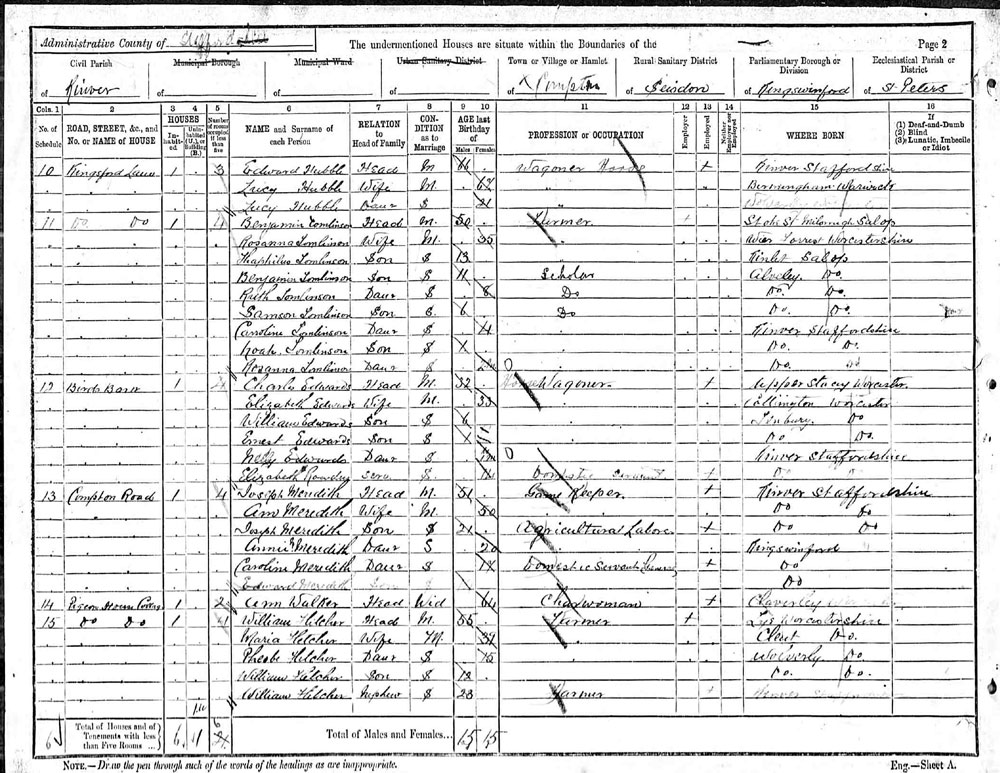 Administrative County of
The undermentioned Houses are situate within the Boundaries of the
Page 2
Civil Parish of Kinver
Municipal Borough of
Municipal Ward of
Urban Sanitary District of
Town or Village or Hamlet of Compton
Rural Sanitary District of Seisdon
Parliamentary Borough or Division of Kingswinford
Ecclesiastical Parish or District of St Peters
Cols. 1 2 3 4 5 6 7 8 9 10 11 12 13 14 15 16
No. of Schedule ROAD, STREET, &c., and No. or NAME of HOUSE HOUSES Inhabited Uninhabited (U.), or Building (B.) Number of rooms occupied if less than five NAME and Surname of each Person RELATION to Head of Family CONDITION as to Marriage AGE last Birthday of Males Females PROFESSION or OCCUPATION Employer Employed Neither Employer nor Employed WHERE BORN If (1) Deaf-and-Dumb (2) Blind (3) Lunatic, Imbecile or Idiot
10 Kingsford Lane 1 3 Edward Hubble Head M 66 Wagoner + Kinver Staffordshire
Lucy Hubble Wife M. Birmingham Warwick
Lucy Hubble Daur S 21
11 Do Do 1 4 Benjamin Tomlinson Head M. 50 Farmer + Stoke St Milborough Salop
Rosanna Tomlinson Wife M. 35 Worcestershire
Tomlinson Son S 13 Kinlet Salop
Benjamin Tomlinson Son S 11 Scholar Alveley Do.
Ruth Tomlinson Daur S 8 Do Do. Do.
Samson Tomlinson Son S. 6 Do Do. Do.
Caroline Tomlinson Daur S 4 Kinver Staffordshire
Noah Tomlinson Son S Do. Do.
Rosanna Tomlinson Daur S Do. Do
12 Birds Barn 1 4 Charles Edwards Head M. 32 Wagoner + Worcester
Elizabeth Edwards Wife M. 33 Worcester
William Edwards Son S 6 Tenbury Do
Ernest Edwards Son S Do Do.
Nelly Edwards Daur S Kinver Staffordshire
Elizabeth Serv. S. 14 Domestic Servant +
13 Compton Road 1 4 Joseph Meredith Head M. 51 Game Keeper + Kinver Staffordshire
Ann Meredith Wife M. 50 Do Do
Joseph Meredith Son S 21 Agricultural Labore + Do Do
Annie Meredith Daur S 20 Kingswinford
Caroline Meredith Daur S 17 Domestic Servant + Do
Edward Meredith Son Do
14 1 2 Ann Walker Head Wid 64 Charwoman + Claverley
15 Do Do 1 4 William Hilcher Head M. 55 Farmer + Lye Worcestershire
Maria Hilcher Wife M. 39 Clent Do.
Phoebe Hilcher Daur S 15 Wolverly Do
William Hilcher Son S 12 Do. Do.
William Hilcher Nephew S 23 Farmer +
6 Total of Houses and of Tenements with less than Five Rooms ... 6 Total of Males and Females... 15 15
NOTE.—Draw the pen through such of the words of the headings as are inappropriate.
Eng.—Sheet A.